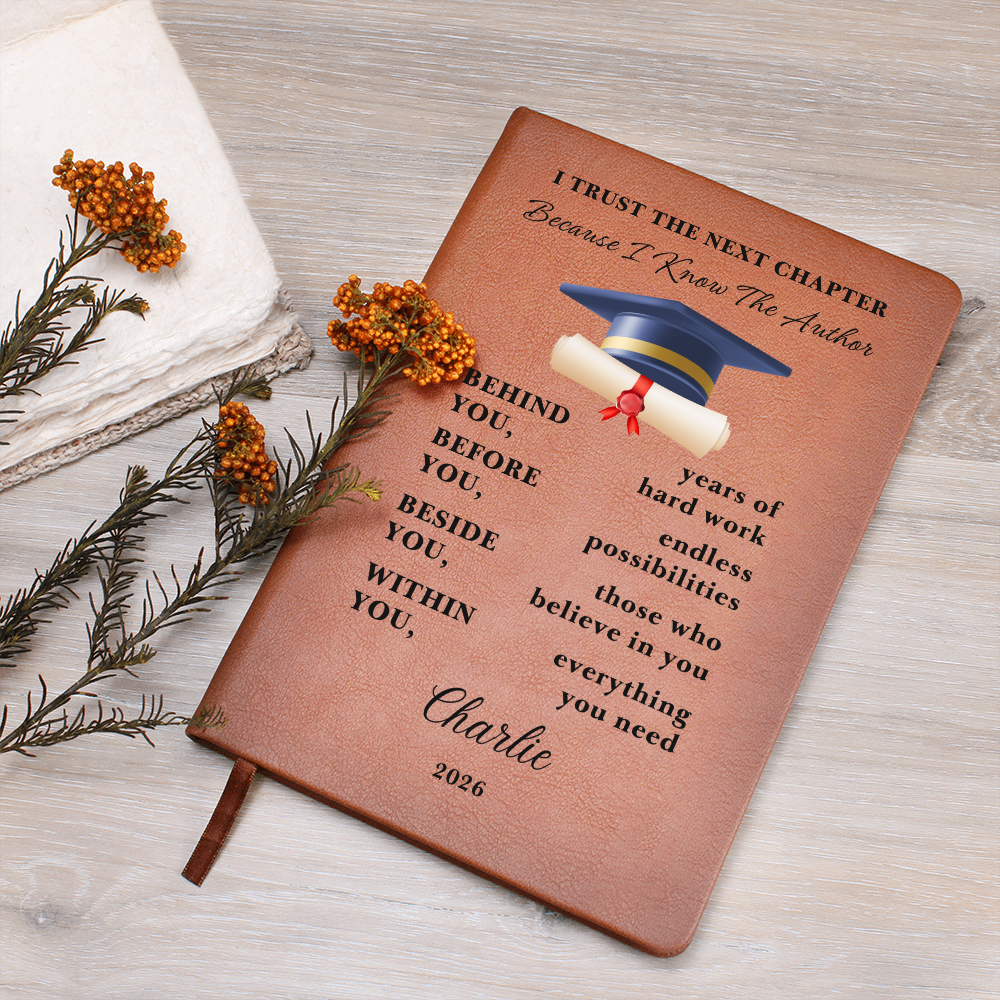 I TRUST THE NEXT CHAPTER
Because I Know The Author
BEHIND
YOU,
years of
hard work
BEFORE
YOU,
endless
possibilities
BESIDE
YOU,
those who
believe in you
WITHIN
YOU,
everything
you need
Charlie
2026